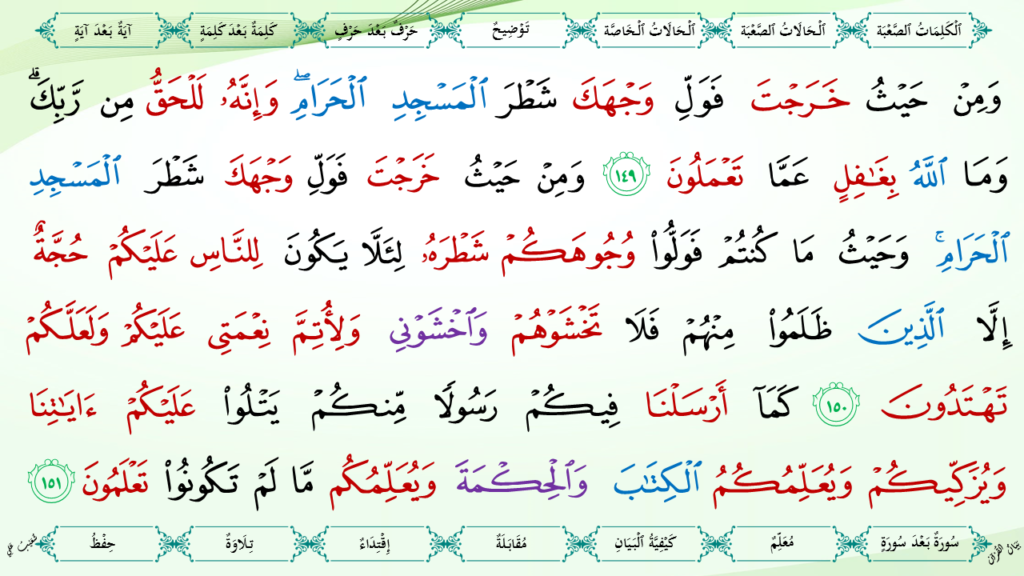 اَلْكَلِمَاتُ الصَّعْبَة	اَلْحَالَاتُ الصَّعْبَة	اَلْحَالَاتُ الْخَاصَّة	تَوْضِيحٌ	حَرْفٌ بَعْدَ حَرْفٍ	كَلِمَةٌ بَعْدَ كَلِمَةٍ	آيَةٌ بَعْدَ آيَةٍ
وَمِنۡ حَيۡثُ خَرَجۡتَ فَوَلِّ وَجۡهَكَ شَطۡرَ ٱلۡمَسۡجِدِ ٱلۡحَرَامِۖ وَإِنَّهُۥ لَلۡحَقُّ مِن رَّبِّكَۗ
وَمَا ٱللَّهُ بِغَٰفِلٍ عَمَّا تَعۡمَلُونَ ١٤٩ وَمِنۡ حَيۡثُ خَرَجۡتَ فَوَلِّ وَجۡهَكَ شَطۡرَ ٱلۡمَسۡجِدِ
ٱلۡحَرَامِۚ وَحَيۡثُ مَا كُنتُمۡ فَوَلُّواْ وُجُوهَكُمۡ شَطۡرَهُۥ لِئَلَّا يَكُونَ لِلنَّاسِ عَلَيۡكُمۡ حُجَّةٌ
إِلَّا ٱلَّذِينَ ظَلَمُواْ مِنۡهُمۡ فَلَا تَخۡشَوۡهُمۡ وَٱخۡشَوۡنِي وَلِأُتِمَّ نِعۡمَتِي عَلَيۡكُمۡ وَلَعَلَّكُمۡ
تَهۡتَدُونَ ١٥٠ كَمَآ أَرۡسَلۡنَا فِيكُمۡ رَسُولٗا مِّنكُمۡ يَتۡلُواْ عَلَيۡكُمۡ ءَايَٰتِنَا
وَيُزَكِّيكُمۡ وَيُعَلِّمُكُمُ ٱلۡكِتَٰبَ وَٱلۡحِكۡمَةَ وَيُعَلِّمُكُم مَّا لَمۡ تَكُونُواْ تَعۡلَمُونَ ١٥١
سُورَةٌ بَعْدَ سُورَةٍ	مُعَلِّمٌ	كَيْفِيَّةُ الْبَيَانِ	مُقَابَلَةٌ	إِقْتِدَاءٌ	تِلَاوَةٌ	حِفْظٌ